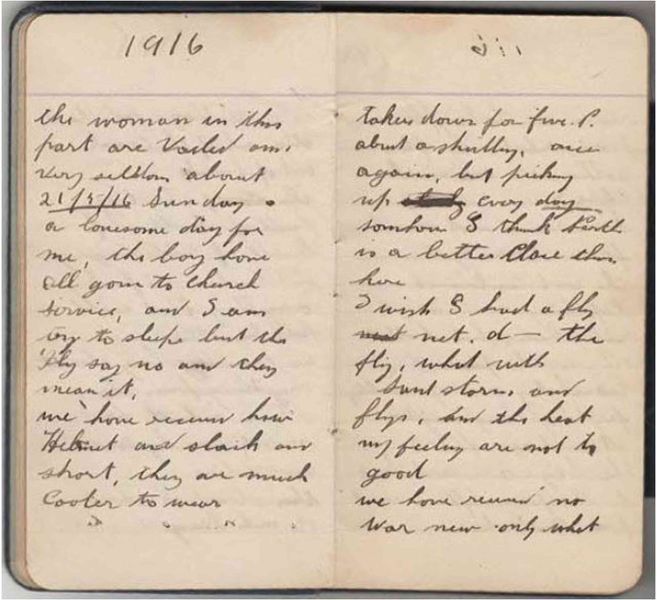 1916
the woman in this
part are Vailed and
very seldom about
21/5/16 Sunday
a lonesome day for
me, the boy have
all gone to Church
service, and I am
try to sleep but the
Fly say no and they
mean it,
we have receive
Helmet and slack and
short, they are much
Cooler to wear
takes down for five P.
about a shilling, once
again, but picking
up every day
somhow I think Perth
is a better Place than
here
I wish I had a fly
net. d— the
fly, what with
Sand storms and
flys, and the heat
my feeling are not to
good
we have receive no
War new only what